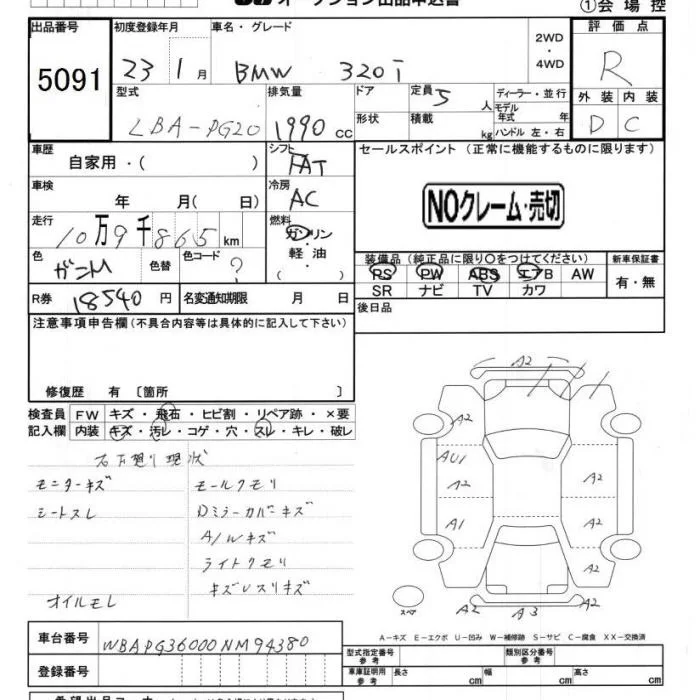 オークション出品申込書
①会場控
出品番号 初度登録年月 車名・グレード 2WD・4WD 評価点
5091 23 1月 BMW 320i R
型式 排気量 ドア 定員 5人 ディーラー・並行 外装 内装
LBA-PG20 1990cc 形状 積載 kg モデル年式 年 ハンドル 左・右 D C
車歴 自家用・( ) シフト FAT セールスポイント (正常に機能するものに限ります)
車検 年 月( 日) 冷房 AC
NOクレーム・売切
走行 10万9千865km 燃料 ガソリン 軽油 ( )
色 色替 色コード ?
装備品 (純正品に限り〇をつけてください) 新車保証書
PS PW ABS エアB AW 有・無
SR ナビ TV カワ
R券 18540円 名変通知期限 月 日 後日品
注意事項申告欄(不具合内容等は具体的に記入して下さい)
修復歴 有 〔箇所 〕
検査員 FW キズ・飛石・ヒビ割・リペア跡・×要
記入欄 内装 キズ・汚レ・コゲ・穴・スレ・キレ・破レ
右下廻り現状
モニターキズ モールクモリ
シートスレ Dミラーカバーキズ
A/Wキズ
ライトクモリ
キズUスリキズ
オイルモレ
A2
A2
AU1 A2
A2 A2
A1 A2
A2
スペア A2 A3 A2
A-キズ E-エクボ U-凹み W-補修跡 S-サビ C-腐食 XX-交換済
車台番号 WBAPG36000NM94380
登録番号
型式指定番号 参考 類別区分番号 参考
車庫証明用 参考 長さ cm 幅 cm 高さ cm